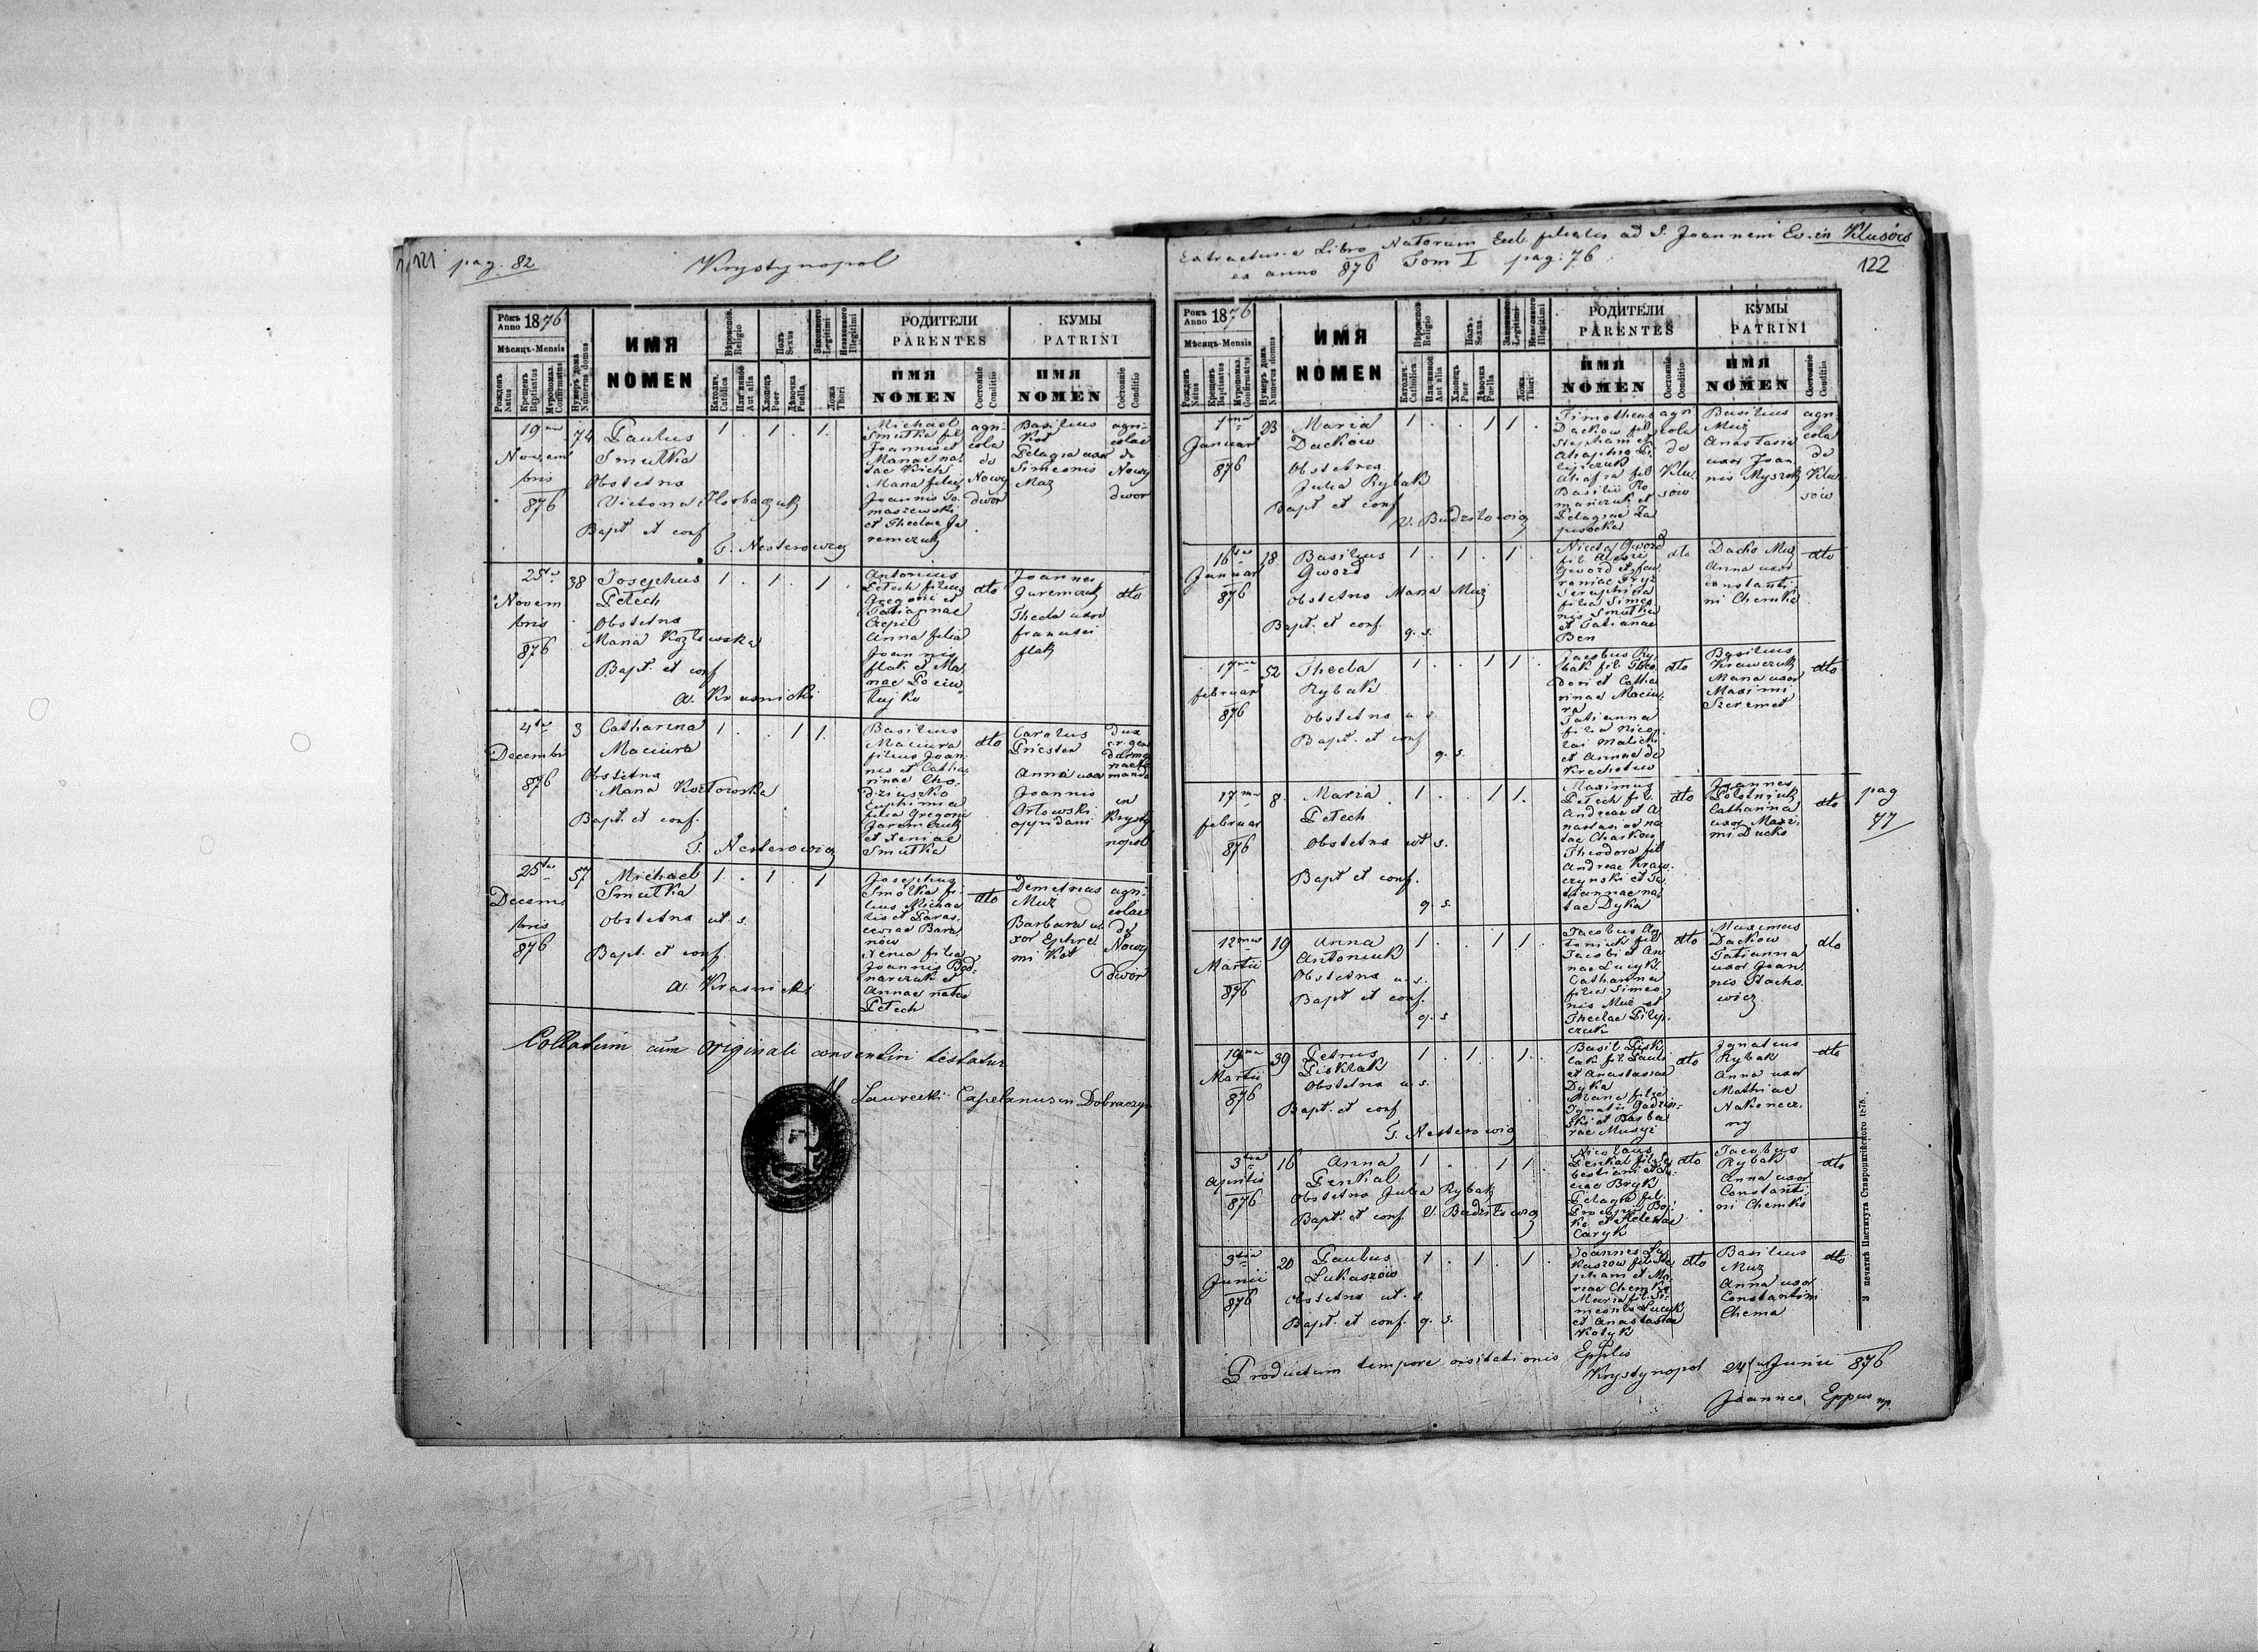 121 pag. 82
Krystynopol
Рокъ Anno 1876
Мѣсяцъ-Mensis
Рожденъ Natus
Крещенъ Baptisatus
Муропомаз. Confirmatus
Нумеръ дома Numerus domus
ИМЯ
NOMEN
Вѣроиспов. Religio
Католич. Catolica
Или иное Aut alia
Полъ Sexus
Хлопецъ Puer
Дѣвочка Puella
Законного Legitimi
Незаконного Illegitimi
Ложа Thori
РОДИТЕЛИ
PARENTES
ИМЯ
NOMEN
Состояніе Conditio
КУМЫ
PATRINI
ИМЯ
NOMEN
Состояніе Conditio
19
Novem
bris
876
74
Paulus
Smutka
Obstetra
Victoria Horbaczuk
Bapt et conf
T. Nesterowicz
1 . 1 . 1.
Michael
Smutka fil
Joannis et
Mariae na
tae Krich
Maria filia
Joannis To
maszewski
et Theclae Ja
remczuk
agri
cola
de
Nowy
dwor
Basilius
Kot
Pelagia uxor
Simeonis
Muz
agri
colae
de
Nowy
dwor
25ta
Novem
bris
876
38
Josephus
Petech
Obstetra
Maria Kozłowska
Bapt. et conf
A. Krasnicki
1 . 1 . 1.
Antonius
Petech filius
Gregorii et
Tatiannae
Czepil
Anna filia
Joannis
flak et Ma
riae Pociu
łujko
dto
Joannes
Juremczuk
Thecla uxor
francisci
flak
dto
4ta
Decembr
876
3
Catharina
Maciura
Obstetra
Maria Kozłowska
Bapt. et conf.
T. Nesterowicz
1 . . 1 1.
Basilius
Maciura
filius Joan
nis et Catha
rinae Cho
dziuszko
Euphimia
filia Gregorii
Jaremczuk
et Xeniae
Smutka
dto
Carolus
Priester
Anna uxor
Joannis
Orłowski
oppidani
in
Krysty
nopol
25ta
Decem
bris
876
57
Michael
Smutka
Obstetra ut. s.
Bapt. et conf.
A. Krasnicki
1 . 1 . 1
Josephus
Smolka fi
lius Michae
lis et Paras
ceviae Bara
now
Xenia filia
Joannis Bod
narczuk et
Annae natae
Petech
dto
Demetrius
Muz
Barbara u
xor Ephre
mi Kot
agri
colae
de
Nowy
dwor
Collatum cum originali consentiri testatur
Laurecki Capelanus in Dobraczyn
Extractus e Libro Natorum Eccl. filialis ad S. Joannem Ev. in Klusów
ex anno 876 Tom I pag: 76
122
Рокъ Anno 1876
Мѣсяцъ-Mensis
Рожденъ Natus
Крещенъ Baptisatus
Муропомаз. Confirmatus
Нумеръ дома Numerus domus
ИМЯ
NOMEN
Вѣроиспов. Religio
Католич. Catholica
Или иное Aut alia
Полъ Sexus
Хлопецъ Puer
Дѣвочка Puella
Законного Legitimi
Незаконного Illegitimi
Ложа Thori
РОДИТЕЛИ
PARENTES
ИМЯ
NOMEN
Состояніе Conditio
КУМЫ
PATRINI
ИМЯ
NOMEN
Состояніе Conditio
1ma
Januar
876
23
Maria
Dackow
Obstetra
Julia Rybak
Bapt et conf
V. Budziłowicz
1 . . 1 1 .
Timotheus
Dackow fil
Stephani et
Basilii Ro
manczuk et
Pelagiae Za
agri
cola
de
Klu
sów
Basilius
Muz
Anastasia
uxor Joan
nis Myszak
agri
cola
de
Klu
sów
16ta
Januar
876
18
Basilius
Gword
Obstetra Maria Muz
Bapt. et conf. q. s.
1 . 1 . 1 .
Niceta Gword
Seraphina
filia Simeo
nis Smutka
et Tatianae
Ben
dto
Dacko Muz
Anna uxor
Constanti
ni Chemka
dto
17ma
februar
876
52
Thecla
Rybak
Obstetra u. s.
Bapt. et conf
q. s.
1 . . 1 1 .
Jacobus Ry
bak fil Theo
dori et Catha
rinae Maciu
ra
Tatianna
filia Nico
lai Malicki
et Annae de
Krechotiw
dto
Basilius
Krawczuk
Maria uxor
Maximi
Szeremet
dto
17ma
februar
876
8
Maria
Petech
Obstetra ut s.
Bapt et conf.
q. s.
1 . . 1 1.
Maximus
Petech fil.
Andreae et A
nastasiae na
tae Charkow
Theodora fil
Andreae Kraw
czynski et Ta
tiannae na
tae Dyka
dto
Joannes
Połotniuk
Catharina
uxor Maxi
mi Dacko
dto
pag
77
12ma
Martii
876
19
Anna
Antoniuk
Obstetra u. s.
Bapt et conf.
q. s
1 . . 1 1.
Jacobus An
toniuk fil
Jacobi et An
nae Lucyk
Catharina
filia Simeo
nis Muz et
Theclae Pilip
czuk
dto
Maximus
Dackow
Tatianna
uxor Joan
nis Stacho
wicz
dto
19ma
Martii
876
39
Petrus
Pisklak
Obstetra u. s.
Bapt. et conf
T. Nesterowicz
1 . 1 . 1.
Basil Pisk
lak fil. Pauli
et Anastasiae
Dyka
Maria filia
Ignatii Gadzin
ski et Barba
rae Musyj
dto
Ignatius
Rybak
Anna uxor
Mathiae
Nakonecz
ny
dto
3tia
Aprilis
876
16
Anna
Penkal
Obstetra Julia Rybak
Bapt. et conf. V. Budziłowicz
1 . . 1 1 .
Nicolaus
Penkal fil Se
bastiani et Lu
ciae Bryk
Pelagia fil.
Procopii Boj
ko et Helenae
Caryk
dto
Jacobus
Rybak
Anna uxor
Constanti
ni Chemka
dto
3tia
Junii
876
20
Paulus
Lukaszow
Obstetra ut. s.
Bapt. et conf. q. s.
1 . 1 . 1 .
Joannes Lu
kaszow fil Ste
phani et Ma
riae Chemka
Maria fil. Si
meonis Lucyk
et Anastasiae
Kotyk
dto
Basilius
Muz
Anna uxor
Constantini
Chema
dto
З печатнѣ Института Ставропигійского 1875.
Productum tempore visitationis Epplis
Krystynopol 24 Junii 876
Joannes Eppus mp.